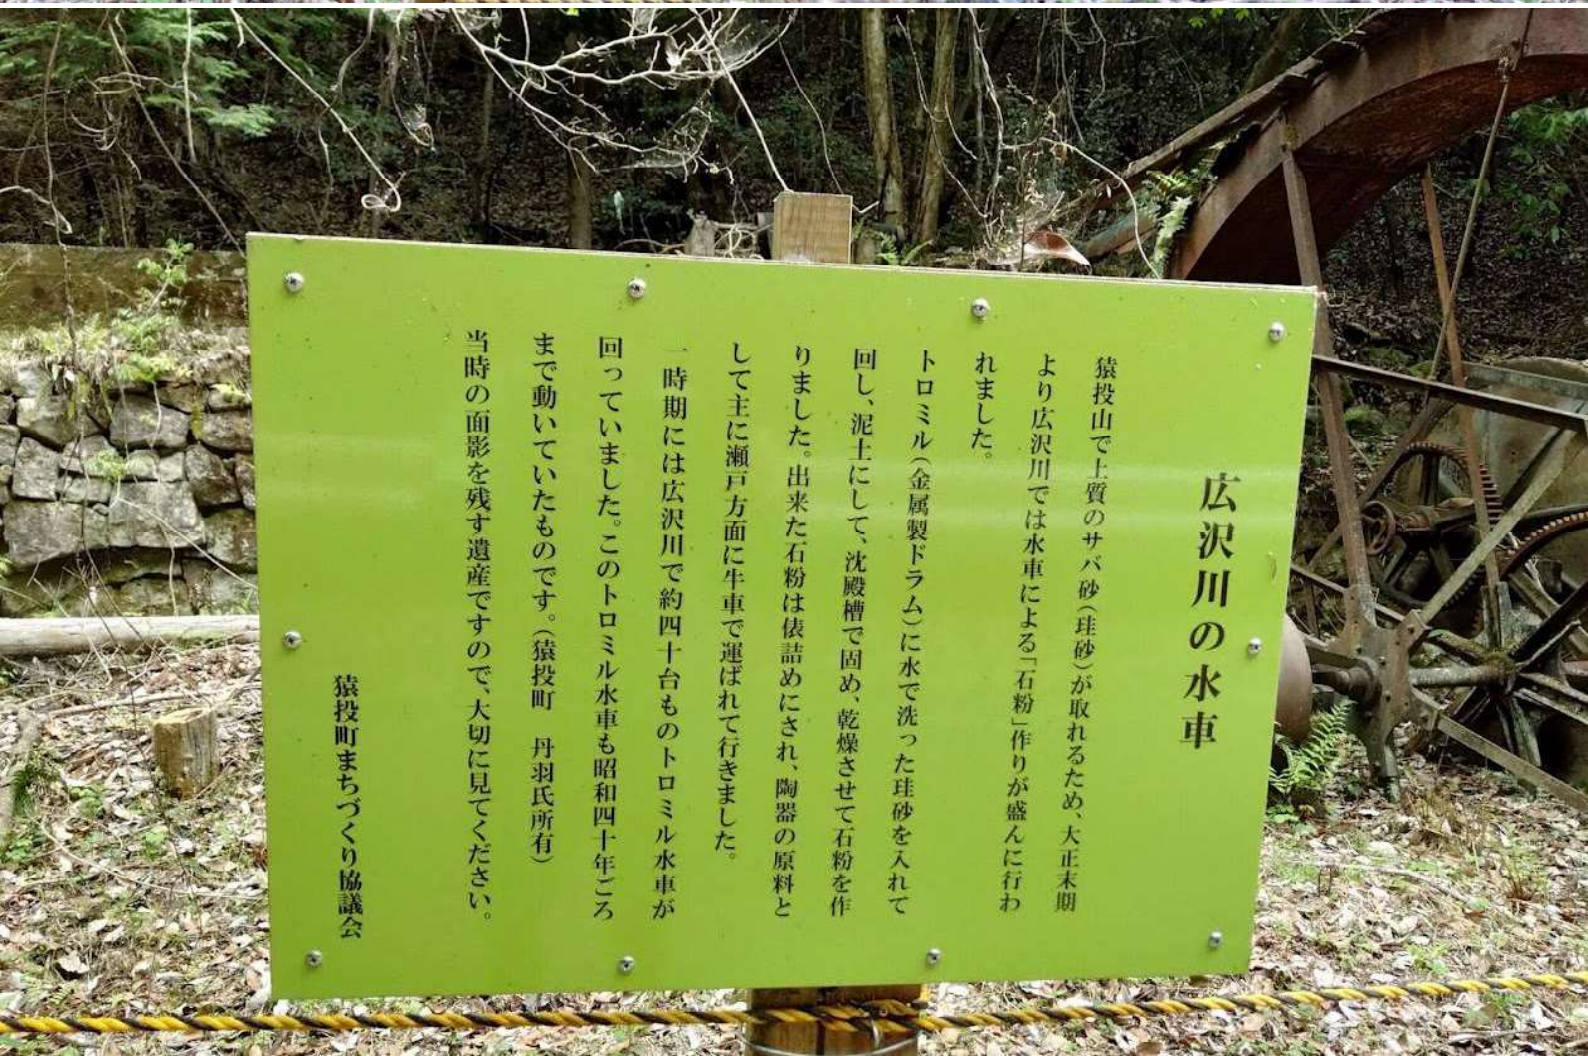 広沢川の水車
猿投山で上質のサバ砂（珪砂）が取れるため、大正末期
より広沢川では水車による「石粉」作りが盛んに行わ
れました。
トロミル（金属製ドラム）に水で洗った珪砂を入れて
回し、泥土にして、沈殿槽で固め、乾燥させて石粉を作
りました。出来た石粉は俵詰めにされ、陶器の原料と
して主に瀬戸方面に牛車で運ばれて行きました。
一時期には広沢川で約四十台ものトロミル水車が
回っていました。このトロミル水車も昭和四十年ごろ
まで動いていたものです。（猿投町　丹羽氏所有）
当時の面影を残す遺産ですので、大切に見てください。
猿投町まちづくり協議会